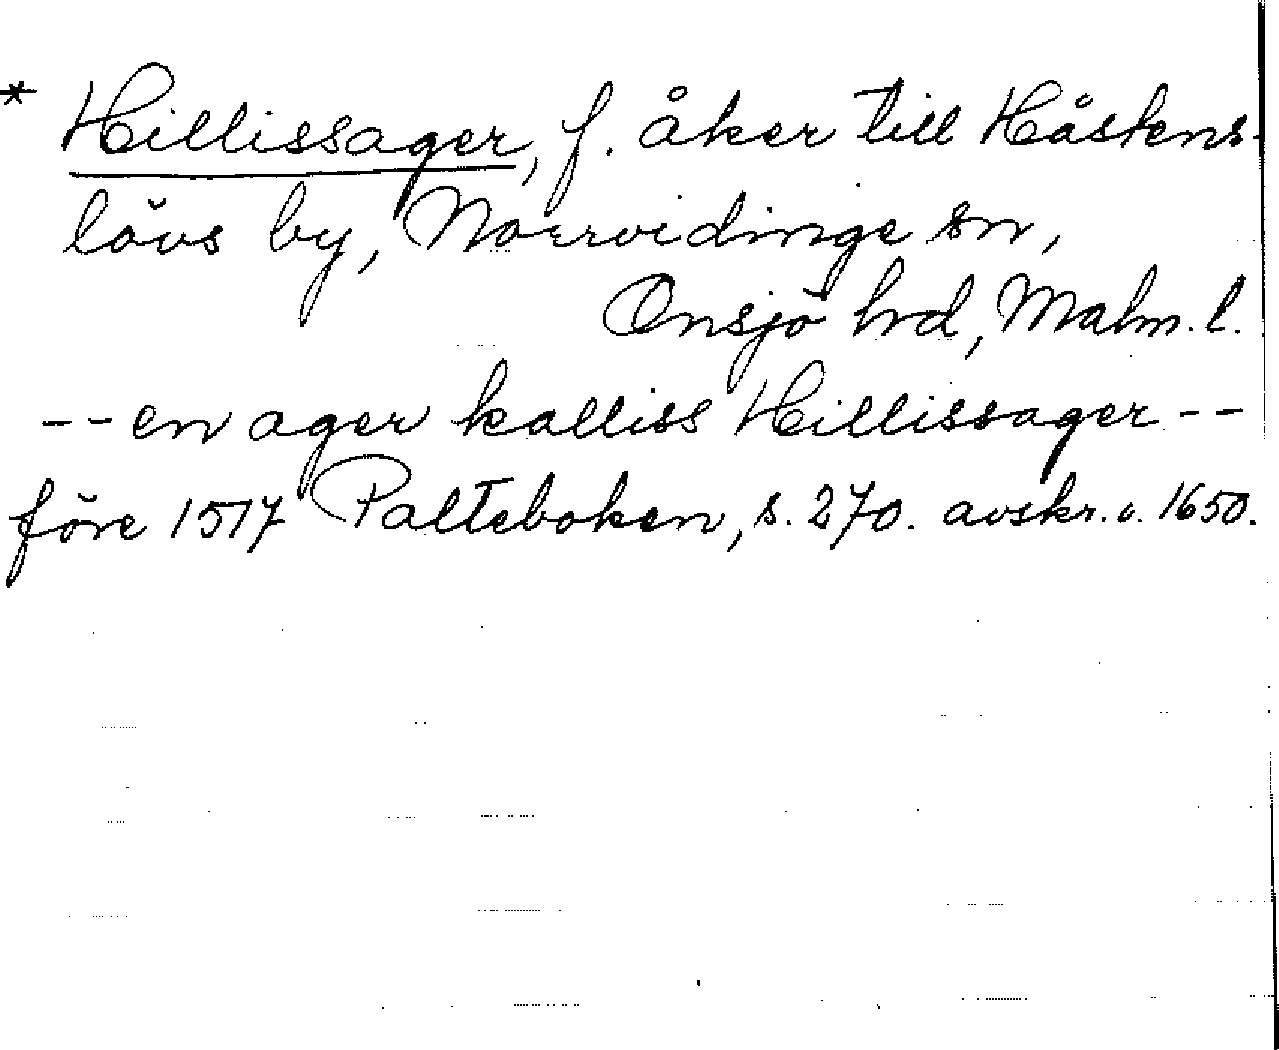 * Hillissager, f. åker till Håstens-
lövs by, Norrvidinge sn,
Onsjö hrd, Malm. l.
-- en ager kalliss Hillissager --
före 1517 Palteboken, s. 270. avskr. c. 1650.